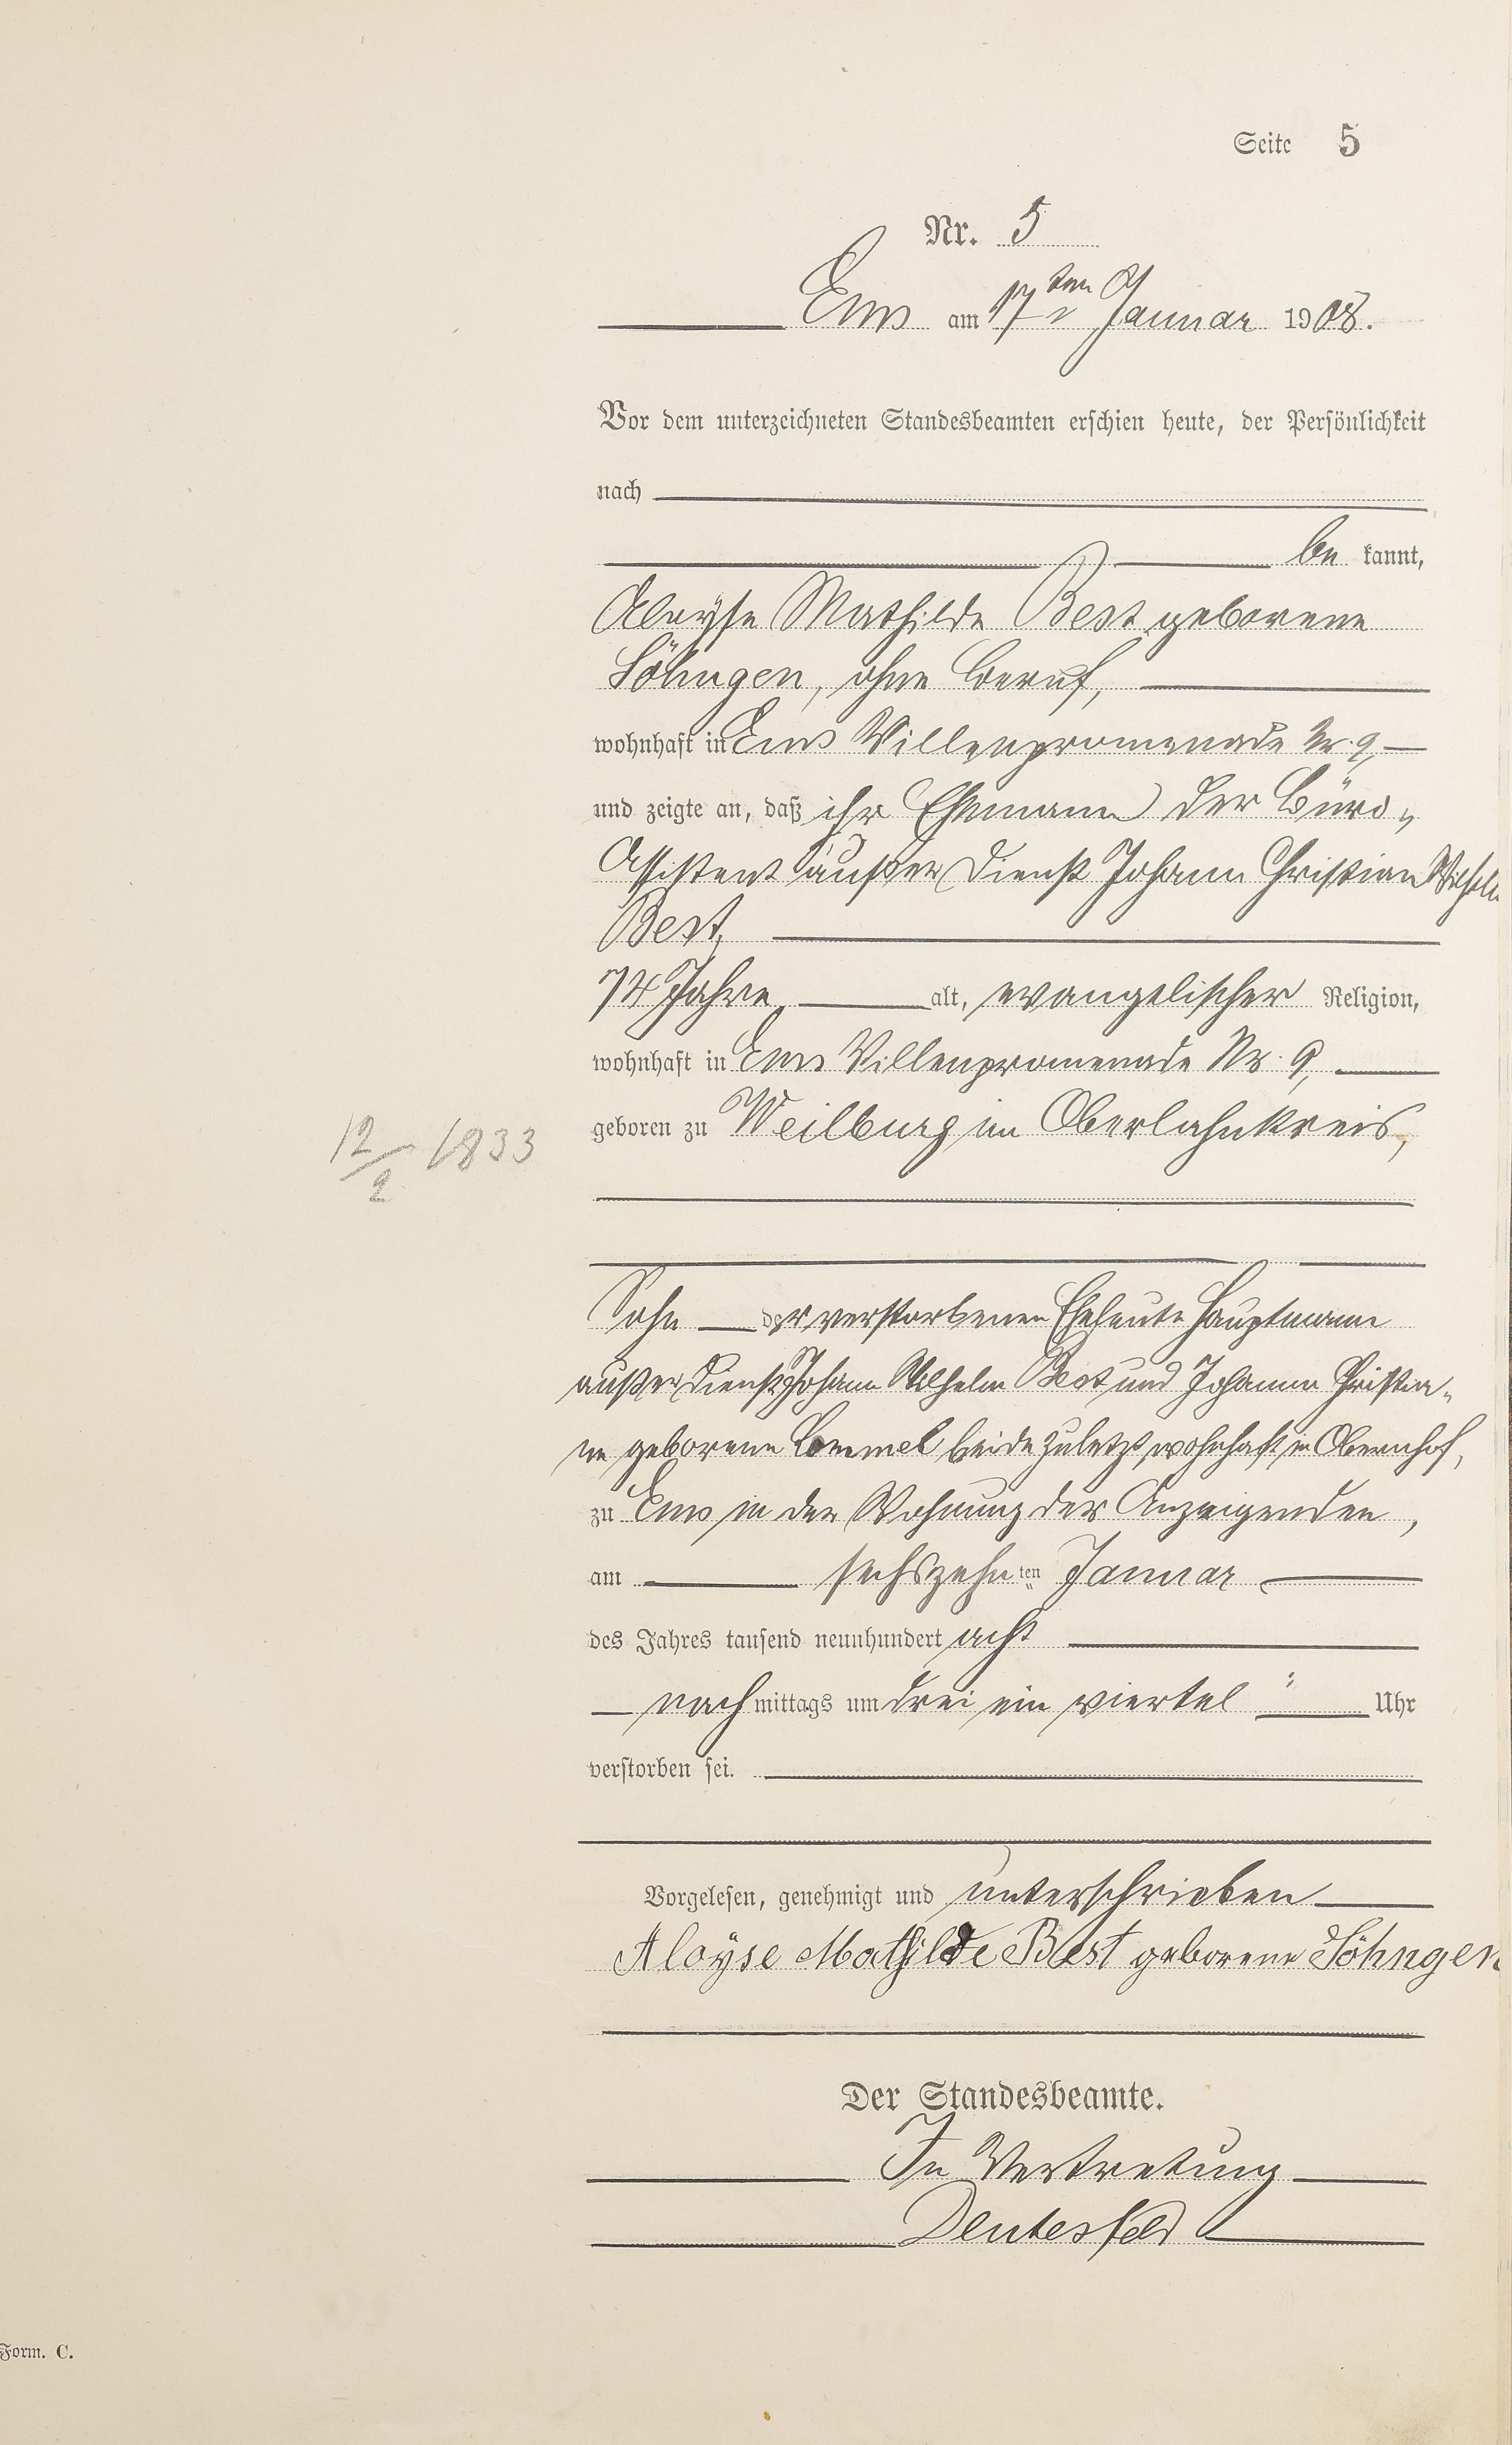 Seite 5
Nr. 5
Ems am 17ten Januar 1908.
Vor dem unterzeichneten Standesbeamten erschien heute, der Persönlichkeit
nach
be kannt,
Aloyse Mathilde Best geborene
Söhngen, ohne Beruf,
wohnhaft in Ems Villenpromenade Nr. 9,
und zeigte an, daß ihr Ehemann der Büro-
Assistent außer Dienst Johann Christian Wilhelm
Best,
74 Jahre, alt, evangelischer Religion,
wohnhaft in Ems Villenpromenade Nr. 9,
geboren zu Weilburg im Oberlahnkreis,
12/2 1833
Sohn der verstorbenen Eheleute Hauptmann
außer Dienst Johann Wilhelm Best und Johanna Christia-
ne geborene beide zuletzt wohnhaft in Obernhof,
zu Ems in der Wohnung der Anzeigenden,
am sechszehnten Januar
des Jahres tausend neunhundert acht
nachmittags um drei ein viertel Uhr
verstorben sei.
Vorgelesen, genehmigt und unterschrieben
Aloyse Mathilde Best geborene Söhngen
Der Standesbeamte.
In Vertretung
Form. C.